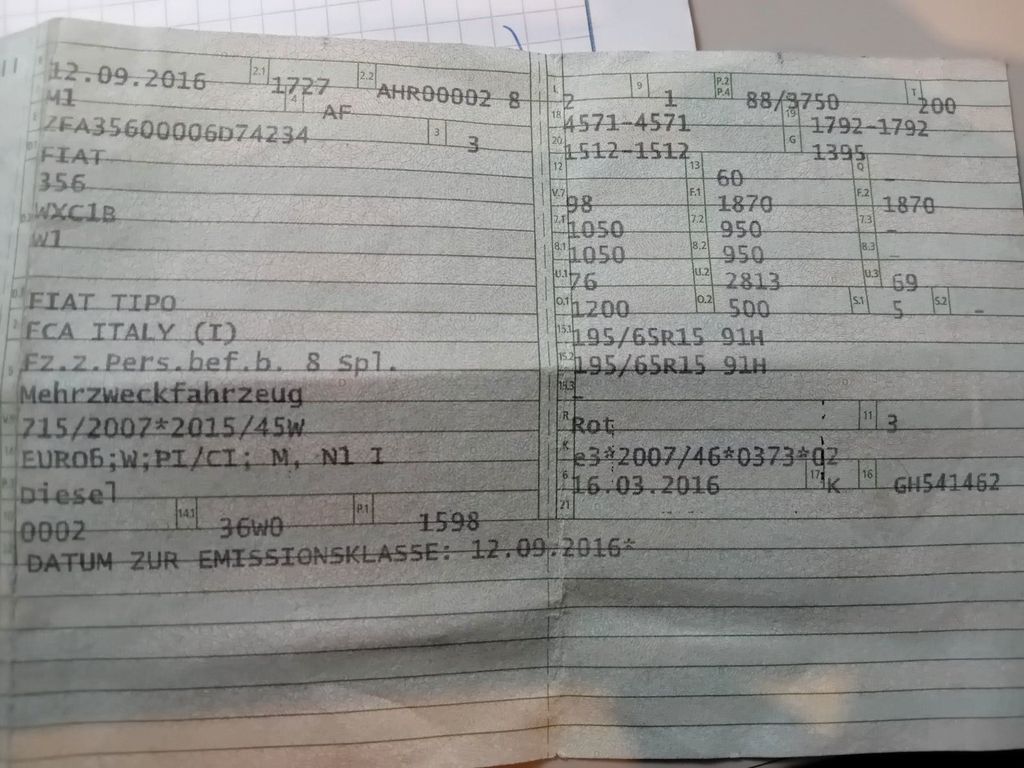 12.09.2016 2.1 1727 2.2 AHR00002 8
M1 4 AF
ZFA35600006D74234 3 3
FIAT
356
WXC1B
W1
FIAT TIPO
FCA ITALY (I)
Fz.z.Pers.bef.b. 8 Spl.
Mehrzweckfahrzeug
715/2007*2015/45W
EURO6;W;PI/CI; M, N1 I
Diesel
0002 14.1 36W0 P.1 1598
DATUM ZUR EMISSIONSKLASSE: 12.09.2016*
L 2 9 1 P.2 P.4 88/3750 T 200
18 4571-4571 19 1792-1792
20 1512-1512 G 1395
12 13 60 Q -
V.7 98 F.1 1870 F.2 1870
7.1 1050 7.2 950 7.3 -
8.1 1050 8.2 950 8.3 -
U.1 76 U.2 2813 U.3 69
O.1 1200 O.2 500 S.1 5 S.2 -
15.1 195/65R15 91H
15.2 195/65R15 91H
15.3 -
R Rot 11 3
K e3*2007/46*0373*02
6 16.03.2016 17 K 16 GH541462
21